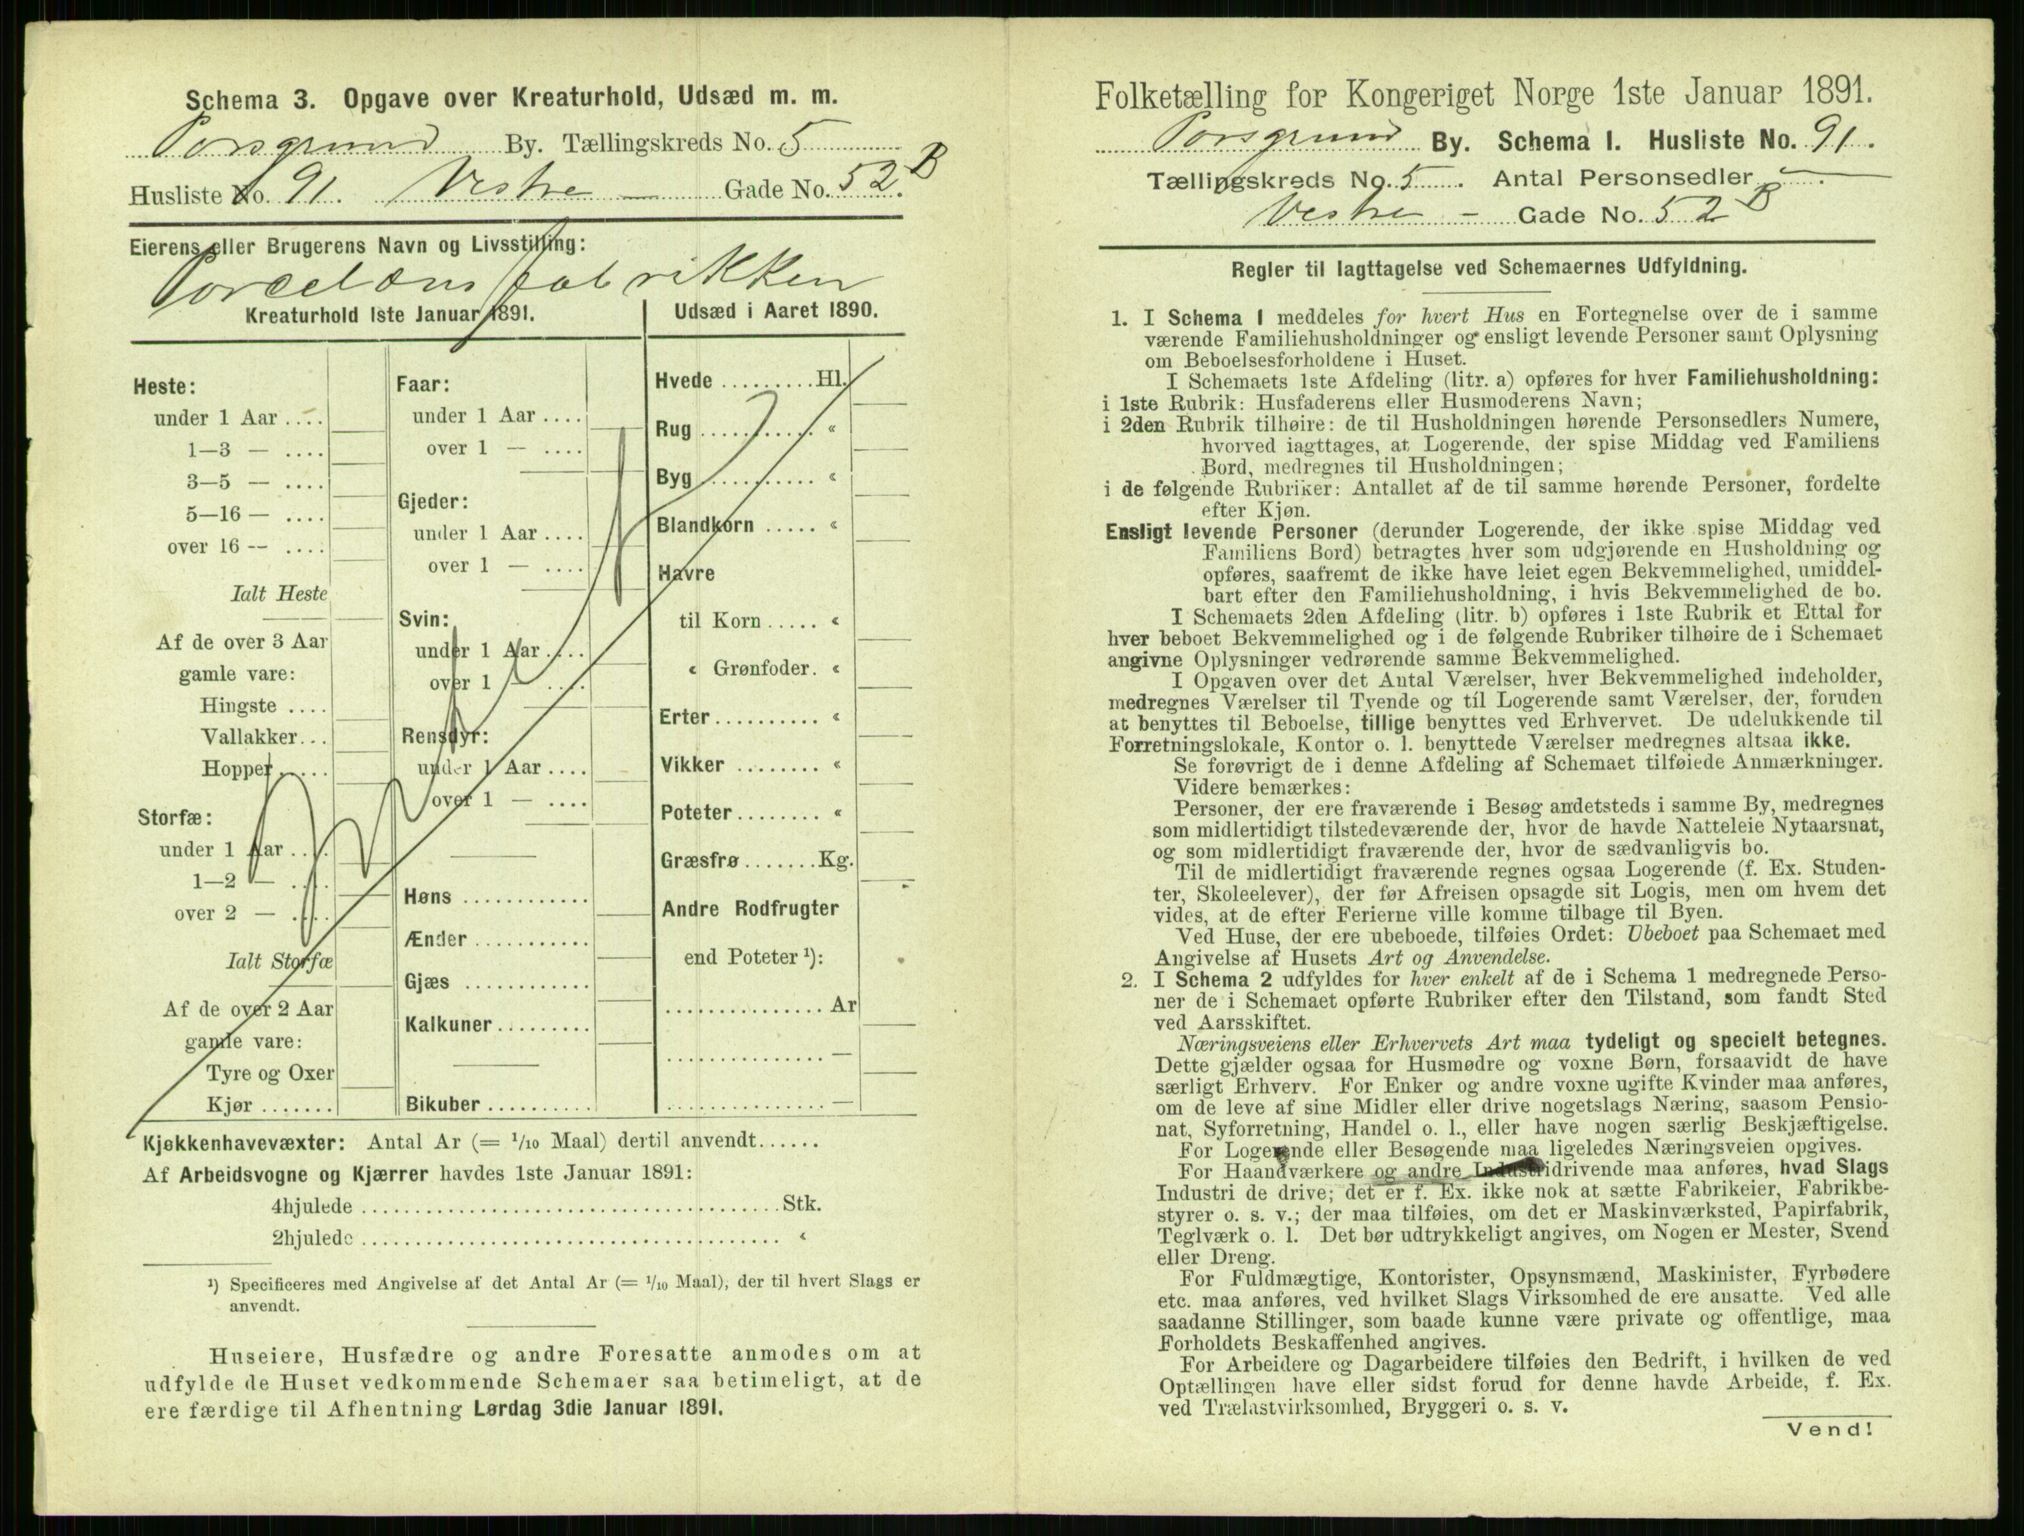 Schema 3. Opgave over Kreaturhold, Udsæd m. m.
Porsgrund By. Tællingskreds No. 5
Husliste No. 91. Vestre — Gade No. 52. B
Eierens eller Brugerens Navn og Livsstilling:
Porcelænsfabrikken
Kreaturhold 1ste Januar 1891.
Heste:
under 1 Aar ....
1—3 — ....
3—5 — ....
5—16 — ....
over 16 -- ....
Ialt Heste
Af de over 3 Aar
gamle vare:
Hingste ....
Vallakker...
Hopper.....
Storfæ:
under 1 Aar ....
1—2 — ....
over 2 — ....
Ialt Storfæ
Af de over 2 Aar
gamle vare:
Tyre og Oxer
Kjør .......
Faar:
under 1 Aar ....
over 1 — ....
Gjeder:
under 1 Aar ....
over 1 — ....
Svin:
under 1 Aar ....
over 1 — ....
Rensdyr:
under 1 Aar ....
over 1 — ....
Høns ............
Ænder ...........
Gjæs ............
Kalkuner.........
Bikuber ..........
Udsæd i Aaret 1890.
Hvede .........Hl.
Rug ........... «
Byg ........... «
Blandkorn ..... «
Havre
til Korn ..... «
« Grønfoder. «
Erter.......... «
Vikker ........ «
Poteter........ «
Græsfrø .......Kg.
Andre Rodfrugter
end Poteter ¹):
............... Ar
............... —
............... —
Kjøkkenhavevæxter: Antal Ar (= 1/10 Maal) dertil anvendt......
Af Arbeidsvogne og Kjærrer havdes 1ste Januar 1891:
4hjulede ....................................... Stk.
2hjulede ....................................... «
¹) Specificeres med Angivelse af det Antal Ar (= 1/10 Maal), der til hvert Slags er
anvendt.
Huseiere, Husfædre og andre Foresatte anmodes om at
udfylde de Huset vedkommende Schemaer saa betimeligt, at de
ere færdige til Afhentning Lørdag 3die Januar 1891.
Folketælling for Kongeriget Norge 1ste Januar 1891.
Porsgrund By. Schema I. Husliste No. 91.
Tællingskreds No. 5. Antal Personsedler — .
Vestre — Gade No. 52 B
Regler til Iagttagelse ved Schemaernes Udfyldning.
1. I Schema 1 meddeles for hvert Hus en Fortegnelse over de i samme
værende Familiehusholdninger og ensligt levende Personer samt Oplysning
om Beboelsesforholdene i Huset.
I Schemaets 1ste Afdeling (litr. a) opføres for hver Familiehusholdning:
i 1ste Rubrik: Husfaderens eller Husmoderens Navn;
i 2den Rubrik tilhøire: de til Husholdningen hørende Personsedlers Numere,
hvorved iagttages, at Logerende, der spise Middag ved Familiens
Bord, medregnes til Husholdningen;
i de følgende Rubriker: Antallet af de til samme hørende Personer, fordelte
efter Kjøn.
Ensligt levende Personer (derunder Logerende, der ikke spise Middag ved
Familiens Bord) betragtes hver som udgjørende en Husholdning og
opføres, saafremt de ikke have leiet egen Bekvemmelighed, umiddel-
bart efter den Familiehusholdning, i hvis Bekvemmelighed de bo.
I Schemaets 2den Afdeling (litr. b) opføres i 1ste Rubrik et Ettal for
hver beboet Bekvemmelighed og i de følgende Rubriker tilhøire de i Schemaet
angivne Oplysninger vedrørende samme Bekvemmelighed.
I Opgaven over det Antal Værelser, hver Bekvemmelighed indeholder,
medregnes Værelser til Tyende og til Logerende samt Værelser, der, foruden
at benyttes til Beboelse, tillige benyttes ved Erhvervet. De udelukkende til
Forretningslokale, Kontor o. l. benyttede Værelser medregnes altsaa ikke.
Se forøvrigt de i denne Afdeling af Schemaet tilføiede Anmærkninger.
Videre bemærkes:
Personer, der ere fraværende i Besøg andetsteds i samme By, medregnes
som midlertidigt tilstedeværende der, hvor de havde Natteleie Nytaarsnat,
og som midlertidigt fraværende der, hvor de sædvanligvis bo.
Til de midlertidigt fraværende regnes ogsaa Logerende (f. Ex. Studen-
ter, Skoleelever), der før Afreisen opsagde sit Logis, men om hvem det
vides, at de efter Ferierne ville komme tilbage til Byen.
Ved Huse, der ere ubeboede, tilføies Ordet: Ubeboet paa Schemaet med
Angivelse af Husets Art og Anvendelse.
2. I Schema 2 udfyldes for hver enkelt af de i Schema 1 medregnede Perso-
ner de i Schemaet opførte Rubriker efter den Tilstand, som fandt Sted
ved Aarsskiftet.
Næringsveiens eller Erhvervets Art maa tydeligt og specielt betegnes.
Dette gjælder ogsaa for Husmødre og voxne Børn, forsaavidt de have
særligt Erhverv. For Enker og andre voxne ugifte Kvinder maa anføres,
om de leve af sine Midler eller drive nogetslags Næring, saasom Pensio-
nat, Syforretning, Handel o. l., eller have nogen særlig Beskjæftigelse.
For Logerende eller Besøgende maa ligeledes Næringsveien opgives.
For Haandværkere og andre Industridrivende maa anføres, hvad Slags
Industri de drive; det er f. Ex. ikke nok at sætte Fabrikeier, Fabrikbe-
styrer o. s. v.; der maa tilføies, om det er Maskinværksted, Papirfabrik,
Teglværk o. l. Det bør udtrykkeligt angives, om Nogen er Mester, Svend
eller Dreng.
For Fuldmægtige, Kontorister, Opsynsmænd, Maskinister, Fyrbødere
etc. maa anføres, ved hvilket Slags Virksomhed de ere ansatte. Ved alle
saadanne Stillinger, som baade kunne være private og offentlige, maa
Forholdets Beskaffenhed angives.
For Arbeidere og Dagarbeidere tilføies den Bedrift, i hvilken de ved
Optællingen have eller sidst forud for denne havde Arbeide, f. Ex.
ved Trælastvirksomhed, Bryggeri o. s. v.
Vend!